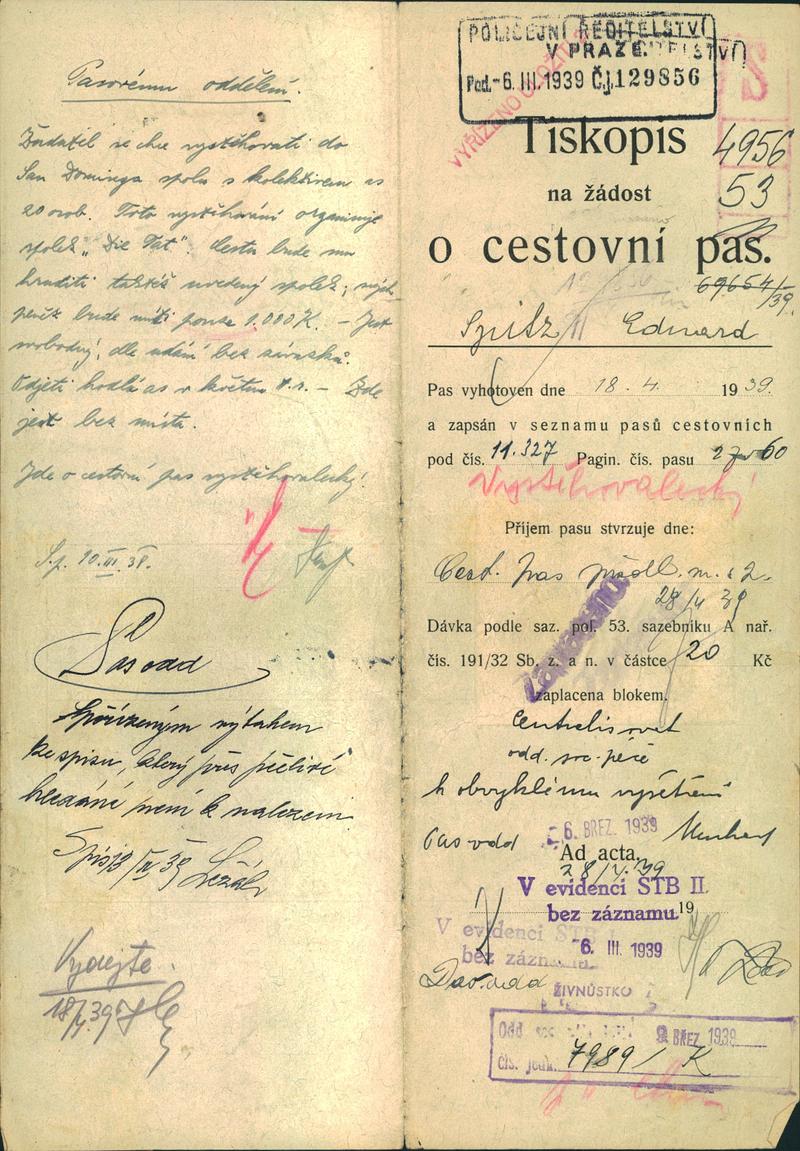 Pasovému oddělení.
Žadatel se chce vystěhovati do
San Dominga spolu s kolektivem as
20 osob. Toto vystěhování organisuje
spolek „Die Tat“. Cestu bude mu
hraditi taktéž uvedený spolek;
peněz bude míti pouze 1.000 K. – Jest
svobodný, dle udání bez závazků.
Odjeti hodlá as v květnu t.r. – Zde
jest bez místa.
Jde o cestovní pas vystěhovalecký!
10.III.39.
Pas odd
výtahem
ke spisu, který přes pečlivé
hledání není k nalezení
Vydejte.
18/4.39
POLICEJNÍ ŘEDITELSTVÍ
V PRAZE
Pod. -6. III 1939 Čj. 129856
VYŘÍZENO
Tiskopis
4956
na žádost
53
o cestovní pas.
69654/39.
Spitz Eduard
Pas vyhotoven dne 18.4. 1939.
a zapsán v seznamu pasů cestovních
pod čís. 11.327 Pagin. čís. pasu 60
Vystěhovalecký
Příjem pasu stvrzuje dne:
Cest. pas
28/4 39
Dávka podle saz. pol. 53. sazebníku A nař.
čís. 191/32 Sb. z. a n. v částce 20 Kč
zaplacena blokem.
Centralisovat
odd. soc. péče
k obvyklému vyšetření
Pas odd
6. BŘEZ. 1939
Ad acta.
28/4.39
V evidenci STB II.
bez záznamu. 19
V evidenci STB I.
bez záznamu.
-6. III. 1939
ŽIVNŮSTKO
Odd
9. BŘEZ 1939
čís. jedn. 7989/ K